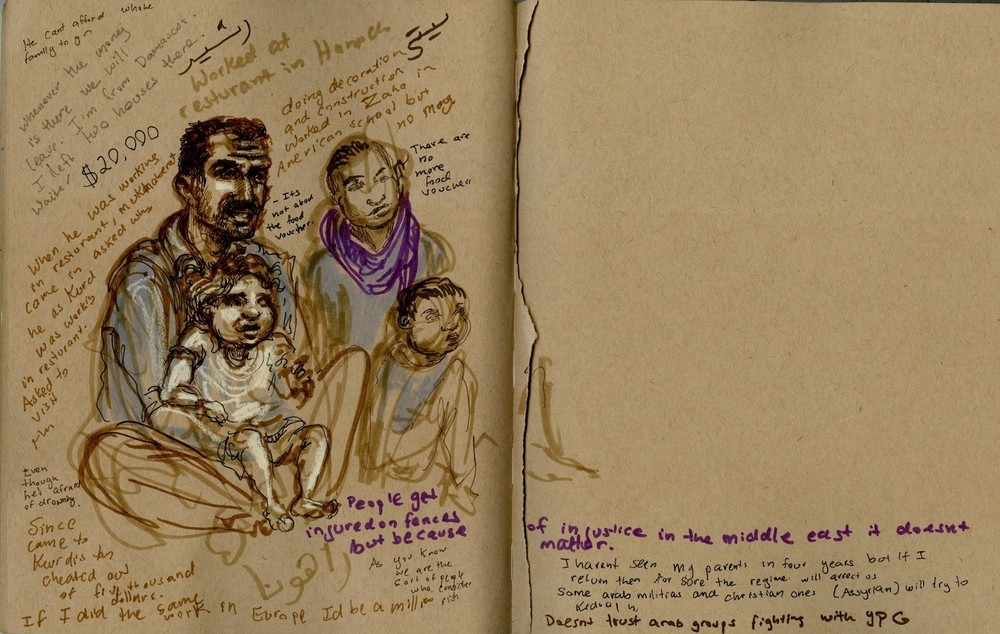 He cant afford whole
family to go
whenever the money
is there we will
leave. I'm from Damascus.
I left two houses there.
$20,000
Worked at
resturant in
doing decoration
and construction
worked in Zaho in
American school but
no more
There are
no
more
food
voucher
- Its
not about
the food
voucher.
When he was working
in resturant,
came in asked why
he as Kurd
was workin
in resturant.
Asked to
visit
Even
though
hes afraid
of drowning.
Since
came to
Kurdistan
cheated out
of five thousand
dollars.
If I did the same
work in Europe Id be a million
People get
injured on fences
but because
As you know
we are the
sort of people
who consider
of injustice in the middle east it doesnt
matter.
I havent seen my parents in four years but if I
return then for sure the regime will arrest us
Some arab militias and christian ones (Assyrian) will try to
Doesnt trust arab groups fighting with YPG